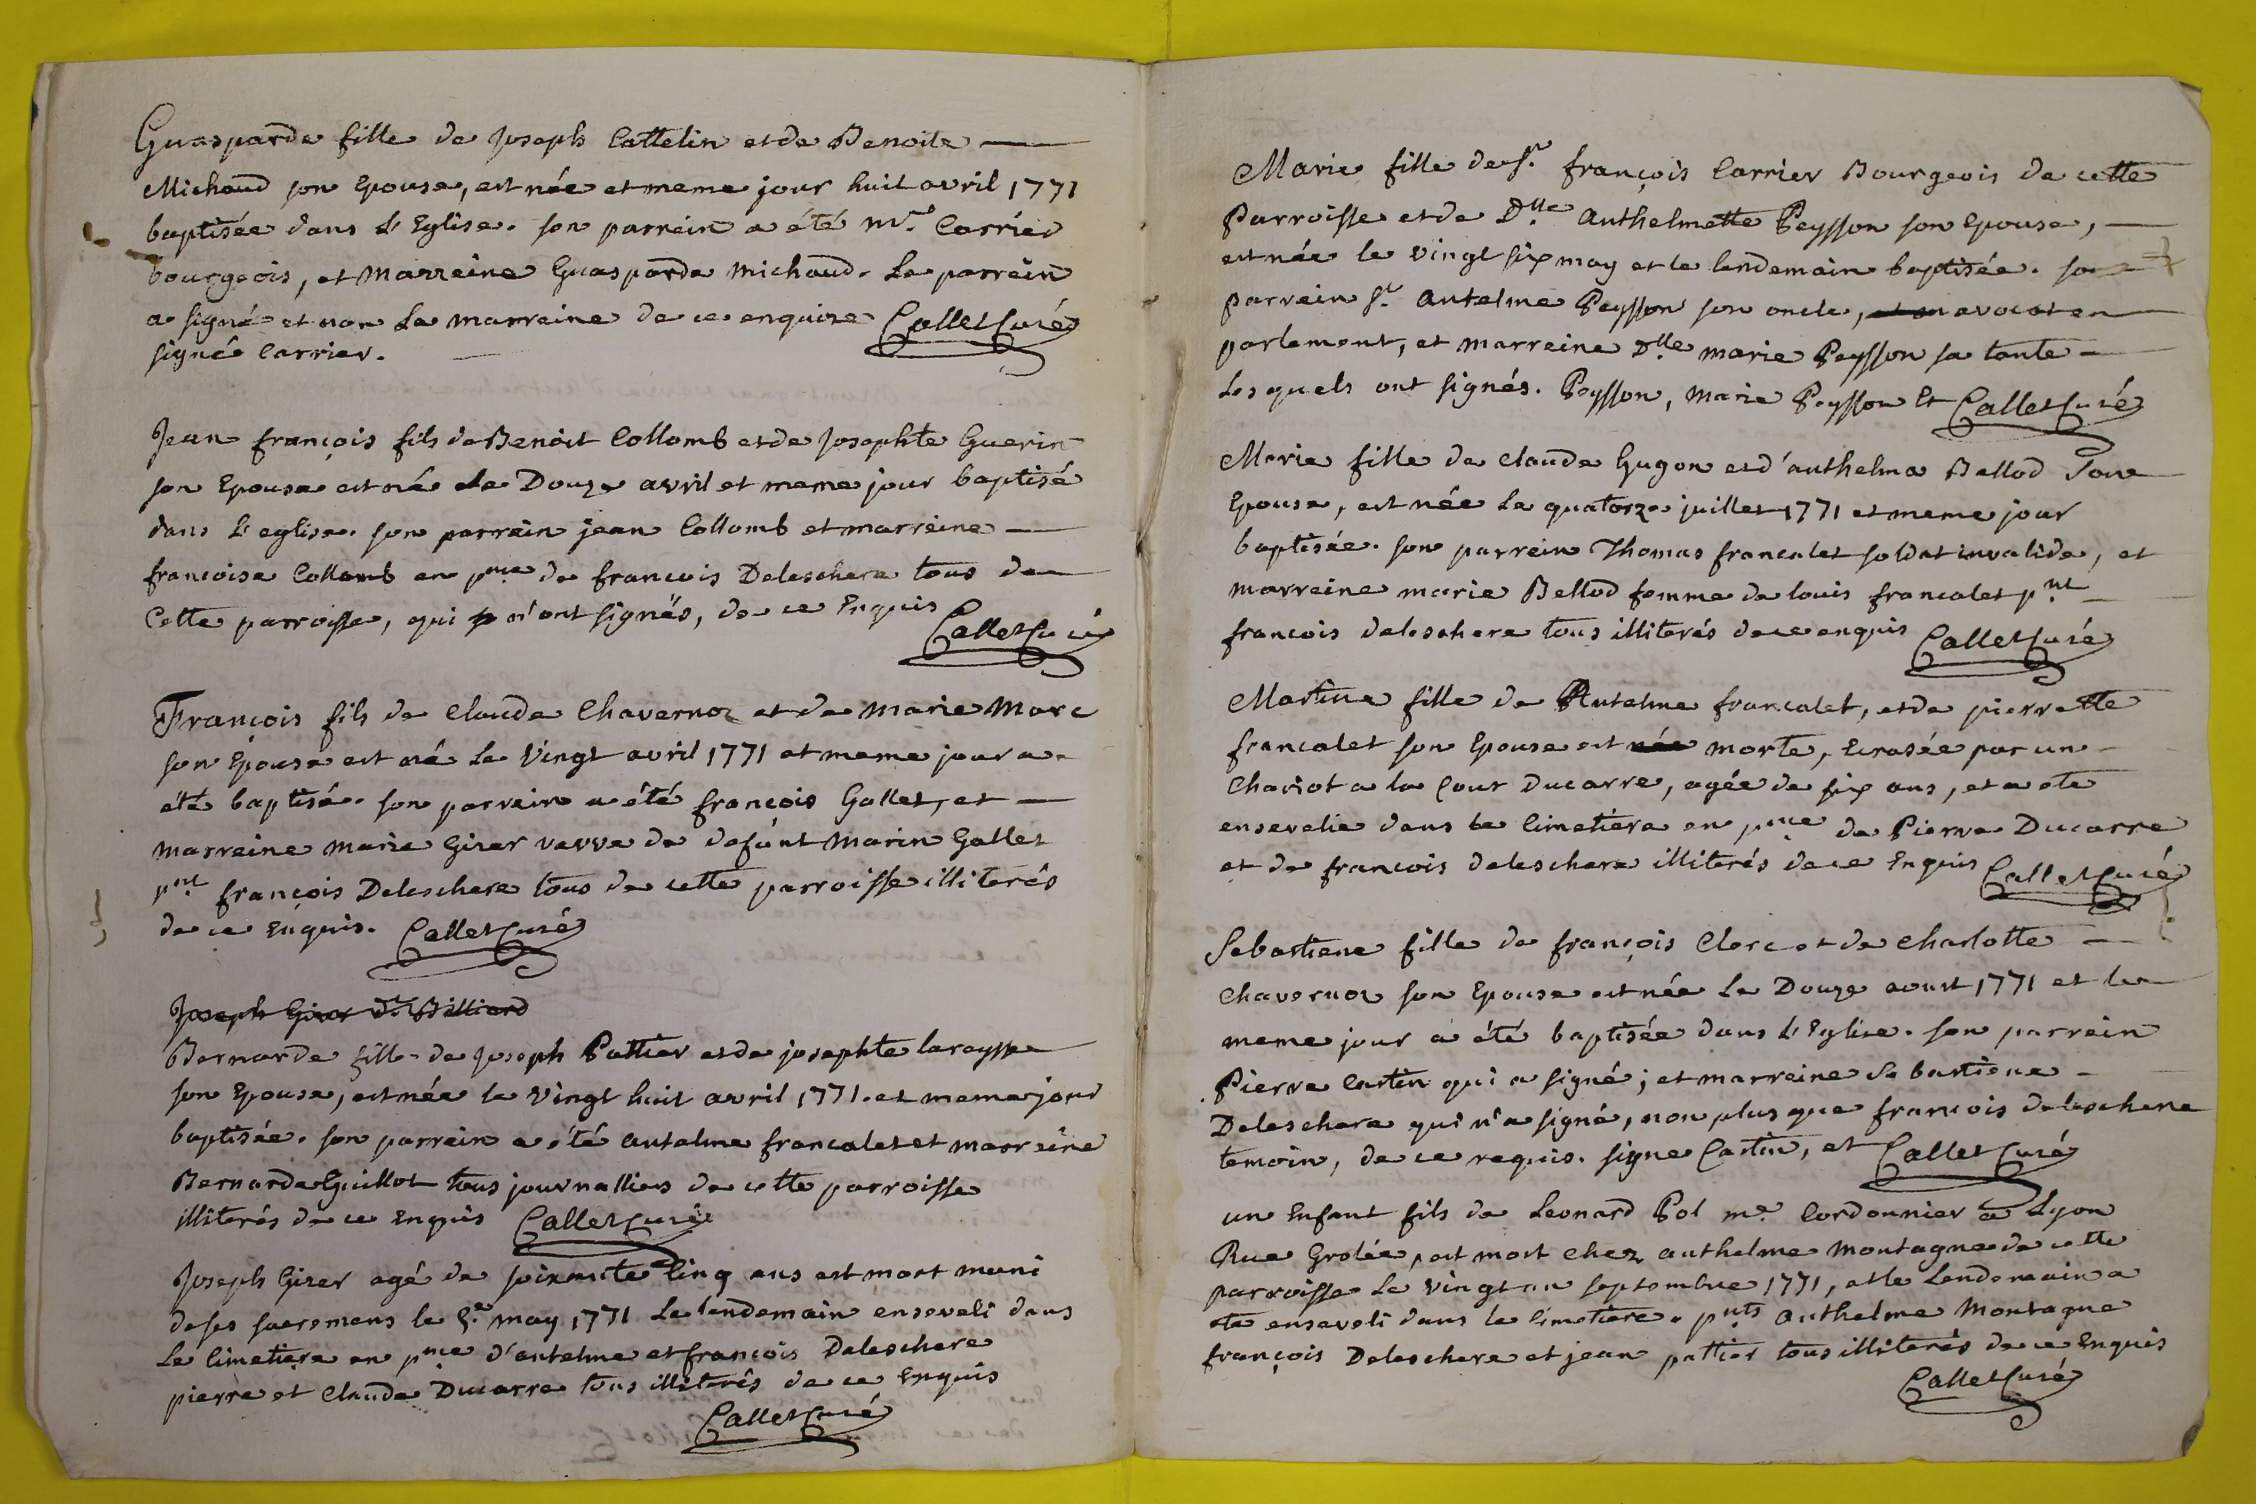 Guasparde fille de Joseph Cattelin et de Benoite
Michaud son Epouse, est née et meme jour huit avril 1771
baptisée dans L'Eglise. son parrein a été Mr. Carrier
bourgeois, et Marreine Guasparde Michaud. Le parrein
a signé et non La marreine de ce enquise Callet Curé
signé Carrier.
Jean françois fils de Benoit Collomb et de Josephte Guerin
son Epouse est né Le Douze avril et meme jour baptisé
dans L'eglise. son parrein jean Collomb et marreine
francoise Collomb en pnce de francois Deleschere tous de
Cette parroisse, qui n'ont signés, de ce Enquis Callet Curé
François fils de Claude Chavernoz et de Marie Marc
son Epouse est né Le Vingt avril 1771 et meme jour a
été baptisé. son parrein a été françois Gallet, et
marreine Marie Girer vevve de defunt Marin Gallet
pnt françois Deleschere tous de cette parroisse illiterés
de ce Enquis. Callet Curé
Joseph Girer dt Billiard
Bernarde fille de Joseph Pattier et de josephte laraysse
son Epouse, est née le Vingt huit avril 1771. et meme jour
baptisée. son parrein a été antelme francalet et marreine
Bernarde Guillot tous journalliers de cette parroisse
illiterés de ce Enquis Callet Curé
Joseph Girer agé de soixante Cinq ans est mort muni
de ses sacremens le 5e. may 1771 Le lendemain enseveli dans
Le Cimetiere en pnce d'antelme et françois Deleschere
pierre et Claude Ducarre tous illiterés de ce Enquis
Callet Curé
Marie fille de Sr. françois Carrier Bourgeois de cette
Parroisse et de Dlle Anthelmette Peysson son Epouse,
est née le vingt six may et le lendemain baptisée. son
parrein Sr. Antelme Peysson son oncle, avocat en
parlement, et marreine Dlle marie Peysson sa tante
Lesquels ont signés. Peysson, Marie Peysson Et Callet Curé
Marie fille de Claude Gugon et d'anthelma Bellod Son
Epouse, est née Le quatorze juillet 1771 et meme jour
baptisée. son parrein Thomas francalet soldat invalide, et
marreine marie Bellod femme de louis francalet pnt
francois deleschere tous illiterés de ce enquis Callet Curé
Martine fille de Antelme francalet, et de pierrette
francalet son Epouse est née morte, Ecrasée par un
Chariot a la Cour Ducarre, agée de six ans, et a ete
ensevelie dans le Cimetiere en pnce de Pierre Ducarre
et de francois deleschere illiterés de ce Enquis Callet Curé
Sebastiane fille de françois Clerc et de Charlotte
Chavernoz son Epouse est née Le Douze aoust 1771 et le
meme jour a été baptisée dans L'Eglise. son parrein
Pierre Castin qui a signé; et marreine Sebastiene
Deleschere qui n'a signé, non plus que francois deleschere
temoin, de ce requis. signe Castin, et Callet Curé
un Enfant fils de Leonard Pol me. Cordonnier a Lyon
Rue Grolée, est mort chez anthelme montagne de cette
parroisse Le vingt un septembre 1771, et le Lendemain a
ete enseveli dans le Cimetiere. pnts anthelme Montagne
françois Deleschere et jean pattier tous illiterés de ce Enquis
Callet Curé